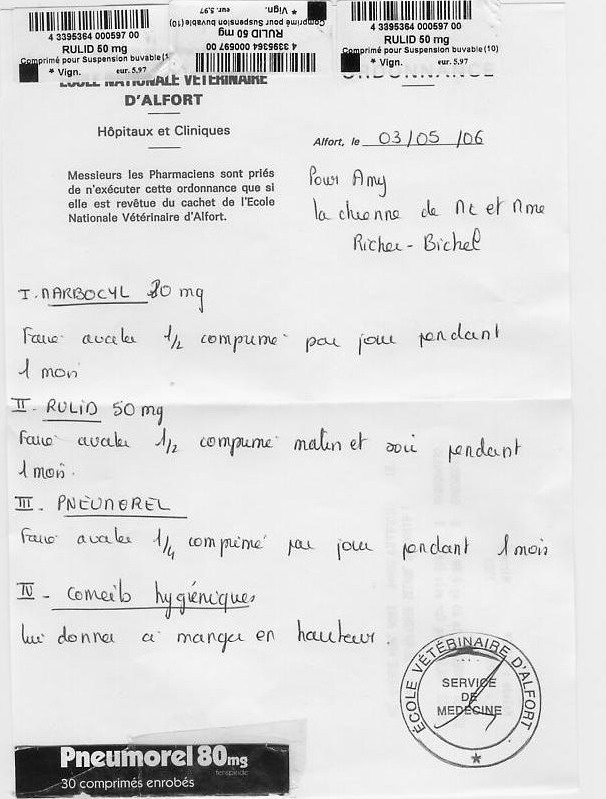 4 3395364 000597 00
RULID 50 mg
Comprimé pour Suspension buvable(1
* Vign. eur. 5,97
* Vign. eur. 5,97
Comprimé pour Suspension buvable (10)
RULID 50 mg
4 3395364 000597 00
4 3395364 000597 00
RULID 50 mg
Comprimé pour Suspension buvable(10)
* Vign. eur. 5,97
ECOLE NATIONALE VETERINAIRE
D'ALFORT
Hôpitaux et Cliniques
Messieurs les Pharmaciens sont priés
de n'exécuter cette ordonnance que si
elle est revêtue du cachet de l'Ecole
Nationale Vétérinaire d'Alfort.
ORDONNANCE
Alfort, le 03/05/06
Pour Amy
la chienne de Mr et Mme
Richer-Bichel
I. MARBOCYL 80 mg
Faire avaler 1/2 comprimé par jour pendant
1 mois
II - RULID 50 mg
Faire avaler 1/2 comprimé matin et soir pendant
1 mois.
III - PNEUMOREL
Faire avaler 1/4 comprimé par jour pendant 1 mois
IV - Conseils hygiéniques
lui donner à manger en hauteur.
ÉCOLE VÉTÉRINAIRE D'ALFORT
SERVICE
DE
MEDECINE
Pneumorel 80mg
fenspiride
30 comprimés enrobés